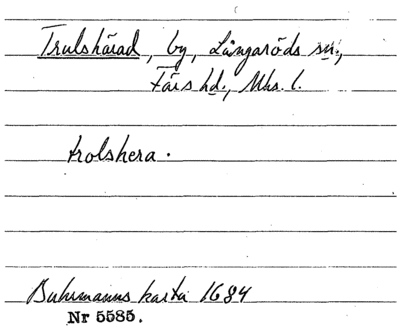 Trulshärad, by, Långaröds sn.,
Färs hd., Mhs. l.
trolshera.
Buhrmanns karta 1684
Nr 5585.